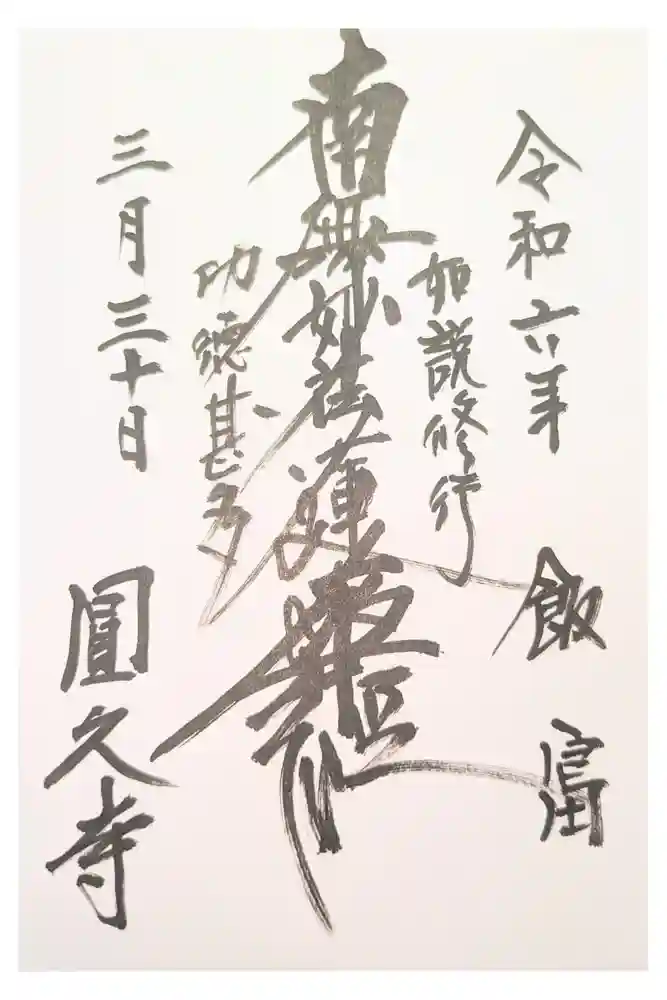 令和六年
飯富
如説修行
南無妙法蓮華経
功徳甚多
三月三十日
圓久寺